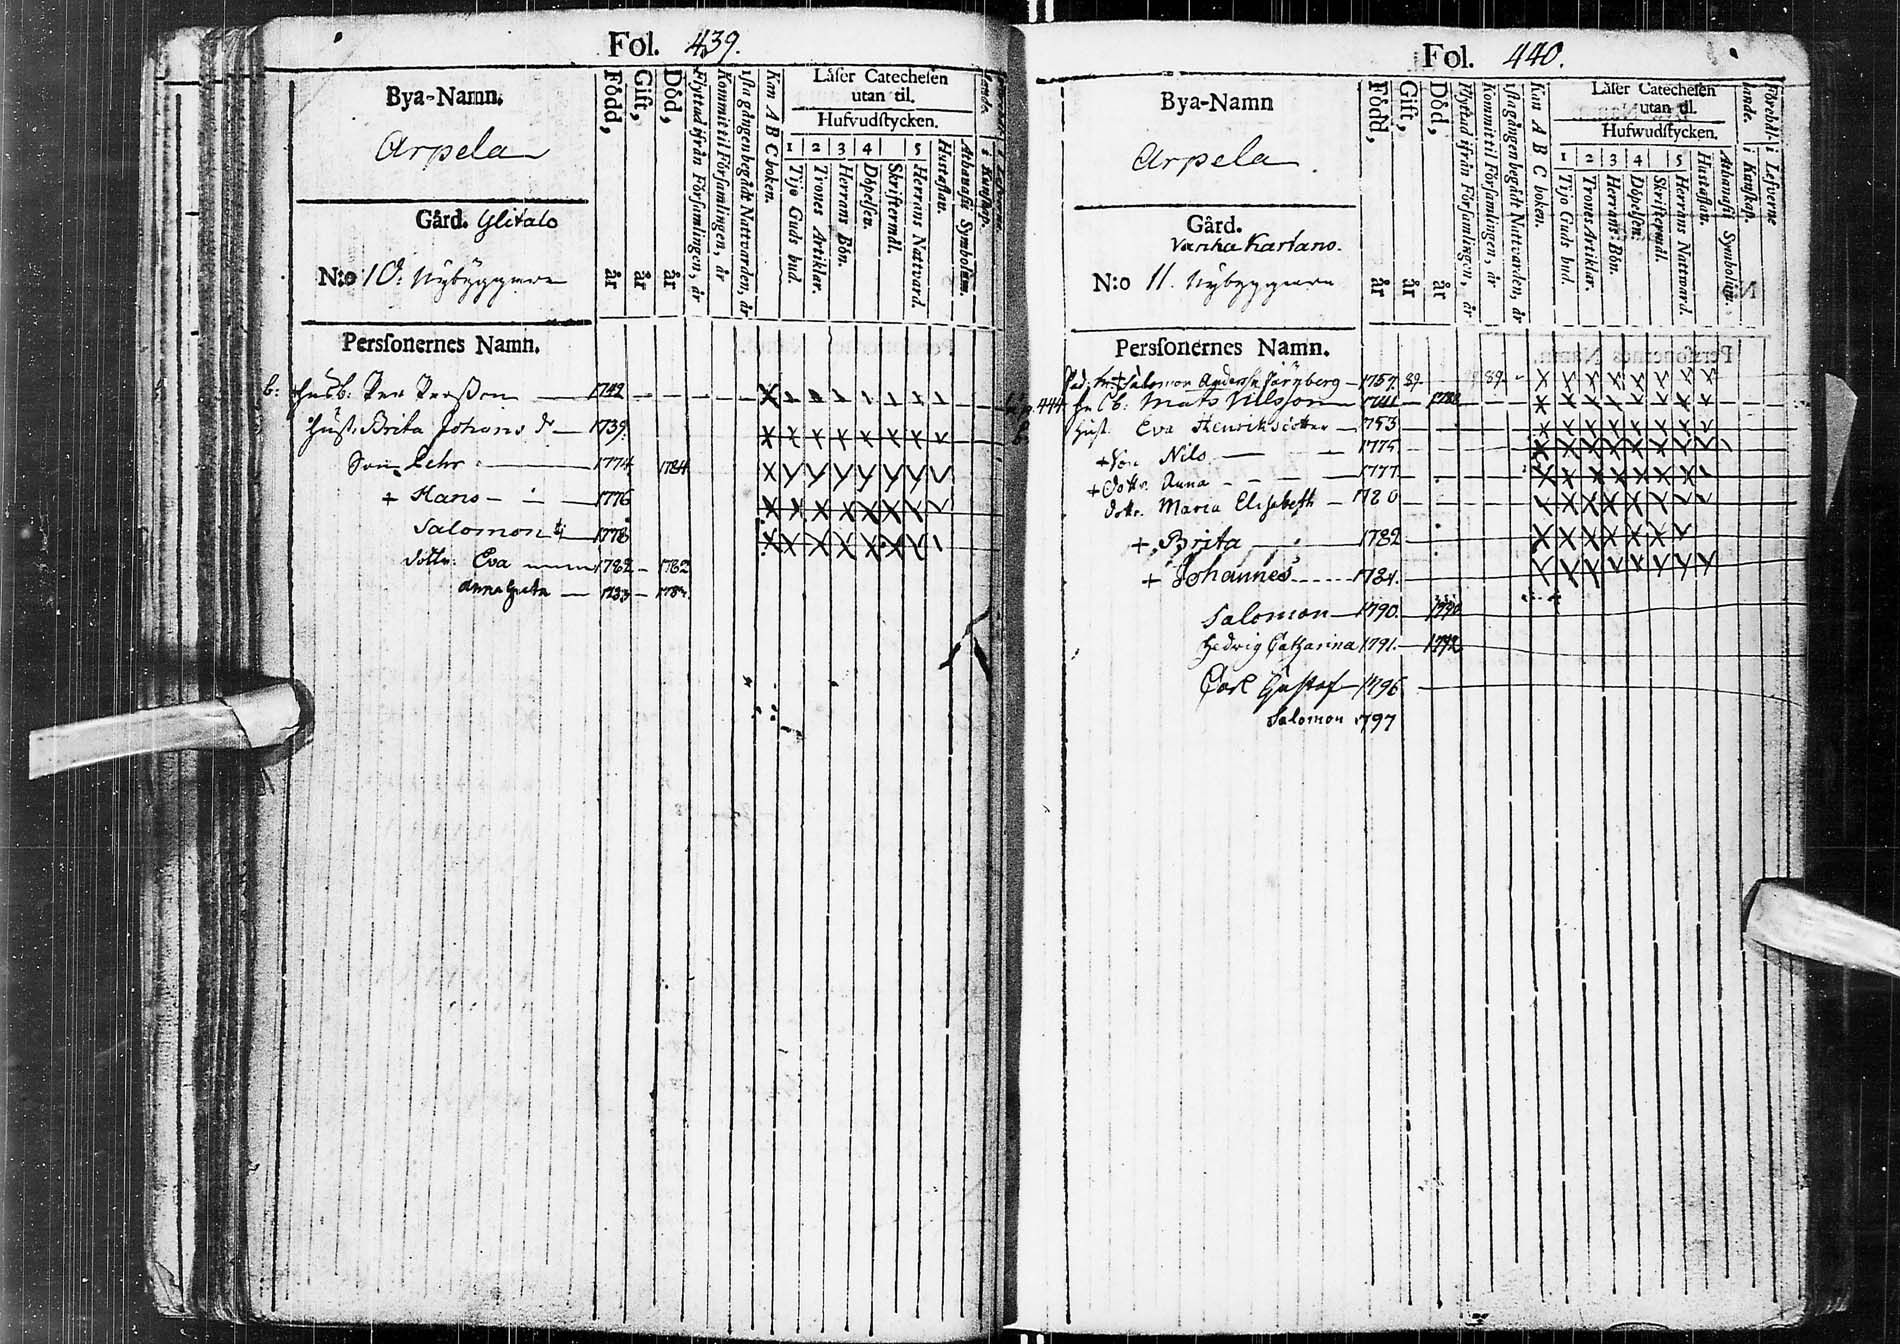 Fol. 439.
Bya-Namn.
Arpela
Gård. Ylitalo
N:o 10. Nybyggare
Persſonernes Namn.
Född, år
Gift, år
Död, år
Flyttad ifrån Församlingen, år
Kommit til Församlingen, år
ſſta gången begådt Nattvarden, år
Kan A B C-boken.
Låſer Catecheſen
utan til.
Hufvudſtycken.
1 2 3 4 5
Tijo Guds bud.
Trones Artiklar.
Herrans Bön.
Döpelſen.
Skriftermål.
Herrans Nattvard.
Huſtaflan.
Athanaſii Symbolum.
b: Husb: Per Persson 1742
Huſt. Brita Johans dr 1739.
Son Pehr 1774 1784
+ Hans 1776
Salomon 1778
dottr. Eva 1782 1782
Anna Greta 1783 1784.
Fol. 440.
Bya-Namn
Arpela
Gård.
Vanha Karlano.
N:o 11. Nybyggare
Persſonernes Namn.
Född, år
Gift, år
Död, år
Flyttad ifrån Församlingen, år
Kommit til Församlingen, år
ſſta gången begådt Nattvarden, år
Kan A B C boken.
Låſer Catecheſen
utan til.
Hufwudſtycken.
1 2 3 4 5
Tijo Guds bud.
Trones Artiklar.
Herrans Bön.
Döpelſen.
Skriftermål.
Herrans Nattvard.
Huſtaflan.
Athanaſii Symbolum.
Förehål- i Lefverne
lande. i Kunſkap.
Salomon Anderss. Järnberg 1757. 89.
444 Mats Nilsson 1741
Huſt. Eva Henriksdotter 1753
+ Son Nils 1775
+ Dottr. Anna 1777.
Dottr. Maria Elisabeth 1780
+ Brita 1782
+ Johannes 1784.
Salomon 1790. 1790
Hedvig Catharina 1791. 1792
Carl Gustaf 1796
Salomon 1797